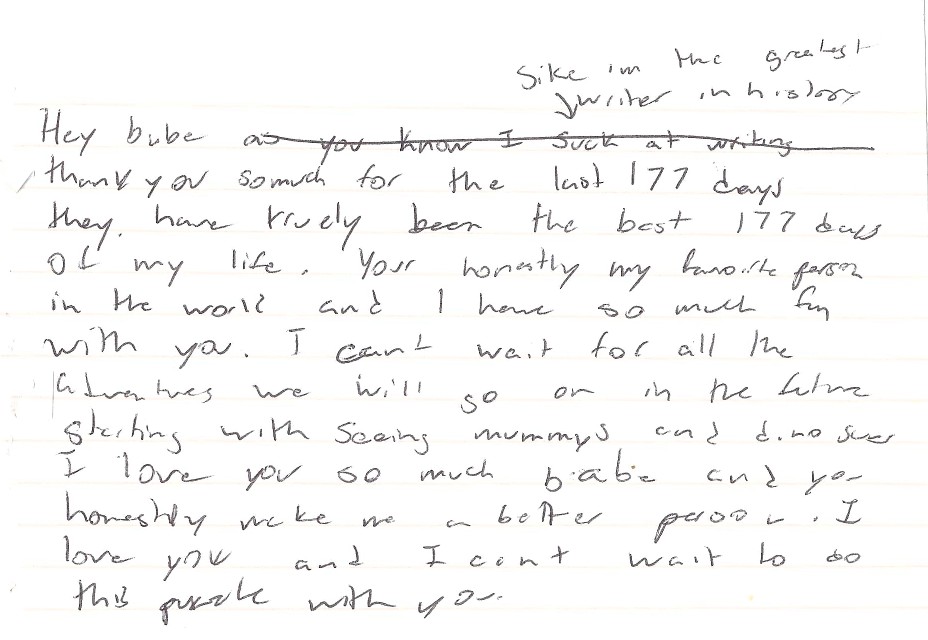 Sike im the greatest
writer in history
Hey bube as you know I suck at writing
thank you somuch for the last 177 days
they have truely been the best 177 days
of my life. Your honestly my favorite person
in the world and I have so much fun
with you. I cant wait for all the
adventures we will go on in the future
starting with seeing mummys and dinosurs
I love you so much babe and you
honestly make me a better person. I
love you and I cant wait to do
this puzzle with you.